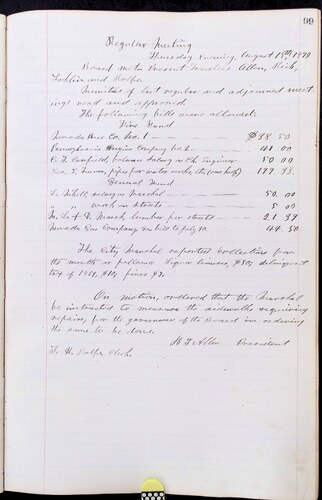 99
Regular Meeting
Thursday Evening, August 18th, 1870
Board met. Present Trustees Allen,
and Rolfe.
Minutes of last regular and adjourned meet
ings read and approved.
The following bills were allowed:
Fire Fund
Nevada Hose Co. No. 1 — $38.50
Pennsylvania Engine Company No. 2 — 101 00
Canfield, balance salary as Ch. Engineer 50 00
Geo. E. pipe for water works, etc.
General Fund
salary as Marshal — 50.00
" " work on streets — 5 00
M. L. & D. Marsh, lumber for streets —
Nevada Gas Company, gas bill to July 10 44.50
The City Marshal reported collections for
the month as follows: liquor licenses, delinquent
tax of
On motion, ordered that the Marshal
be instructed to measure the sidewalks requiring
repairs, for the governance of the Board in ordering
the same to be done.
Allen President
Rolfe Clerk.